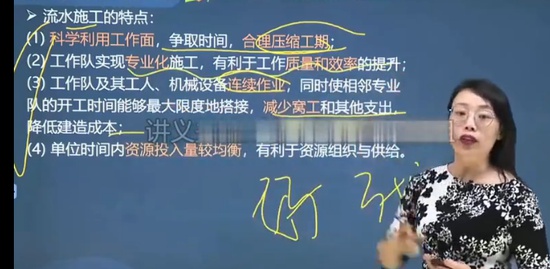 ➢ 流水施工的特点：
(1) 科学利用工作面，争取时间，合理压缩工期；
(2) 工作队实现专业化施工，有利于工作质量和效率的提升；
(3) 工作队及其工人、机械设备连续作业；同时使相邻专业
队的开工时间能够最大限度地搭接，减少窝工和其他支出，
降低建造成本；
讲义
(4) 单位时间内资源投入量较均衡，有利于资源组织与供给。